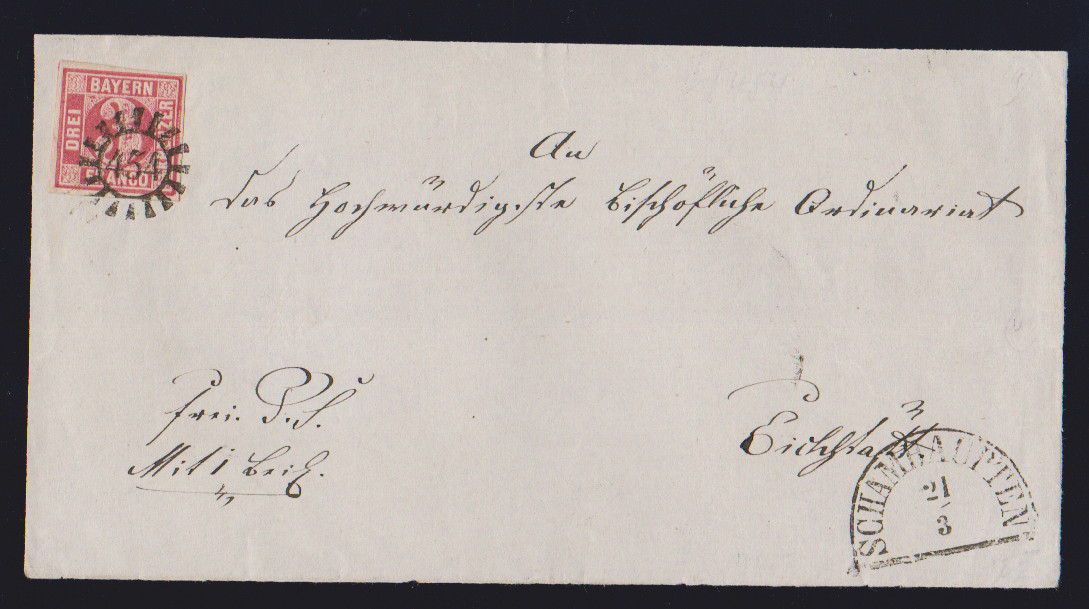 BAYERN
DREI
FRANCO
454
An
das Hochwürdigste Bischöfliche Ordinariat
frei. P. S.
Mit 1 Beil.
Eichstätt
SCHAMHAUPTEN
21
3